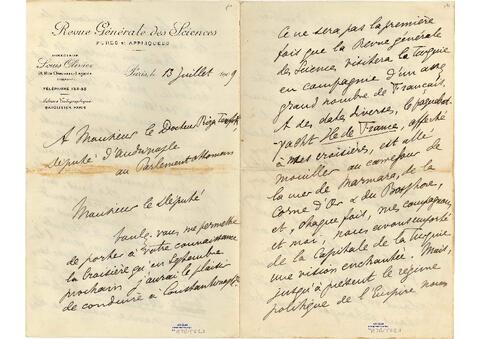 Revue Générale des Sciences
PURES ET APPLIQUÉES
DIRECTEUR
Louis Olivier
Paris, le 13 Juillet 1909
TÉLÉPHONE
Adresse Télégraphique
A Monsieur le Docteur Riza Tewfik,
député d'Andrinople
au Parlement ottoman
Monsieur le député
Voulez-vous me permettre
de porter à votre connaissance
la croisière qu'en Septembre
prochain j'aurai le plaisir
de conduire à Constantinople.
Ce ne sera pas la première
fois que la Revue générale
des Sciences visitera la Turquie
en compagnie d'un assez
grand nombre de Français.
A des dates diverses, le paquebot-
yacht Ile de France, affecté
à mes croisières, est allé
mouiller au carrefour de
la mer de Marmara, de la
Corne d'Or & du Bosphore,
et, chaque fois, mes compagnons
et moi, nous avons emporté
de la Capitale de la Turquie
une vision enchantée. Mais,
jusqu'à présent le régime
politique de l'Empire nous